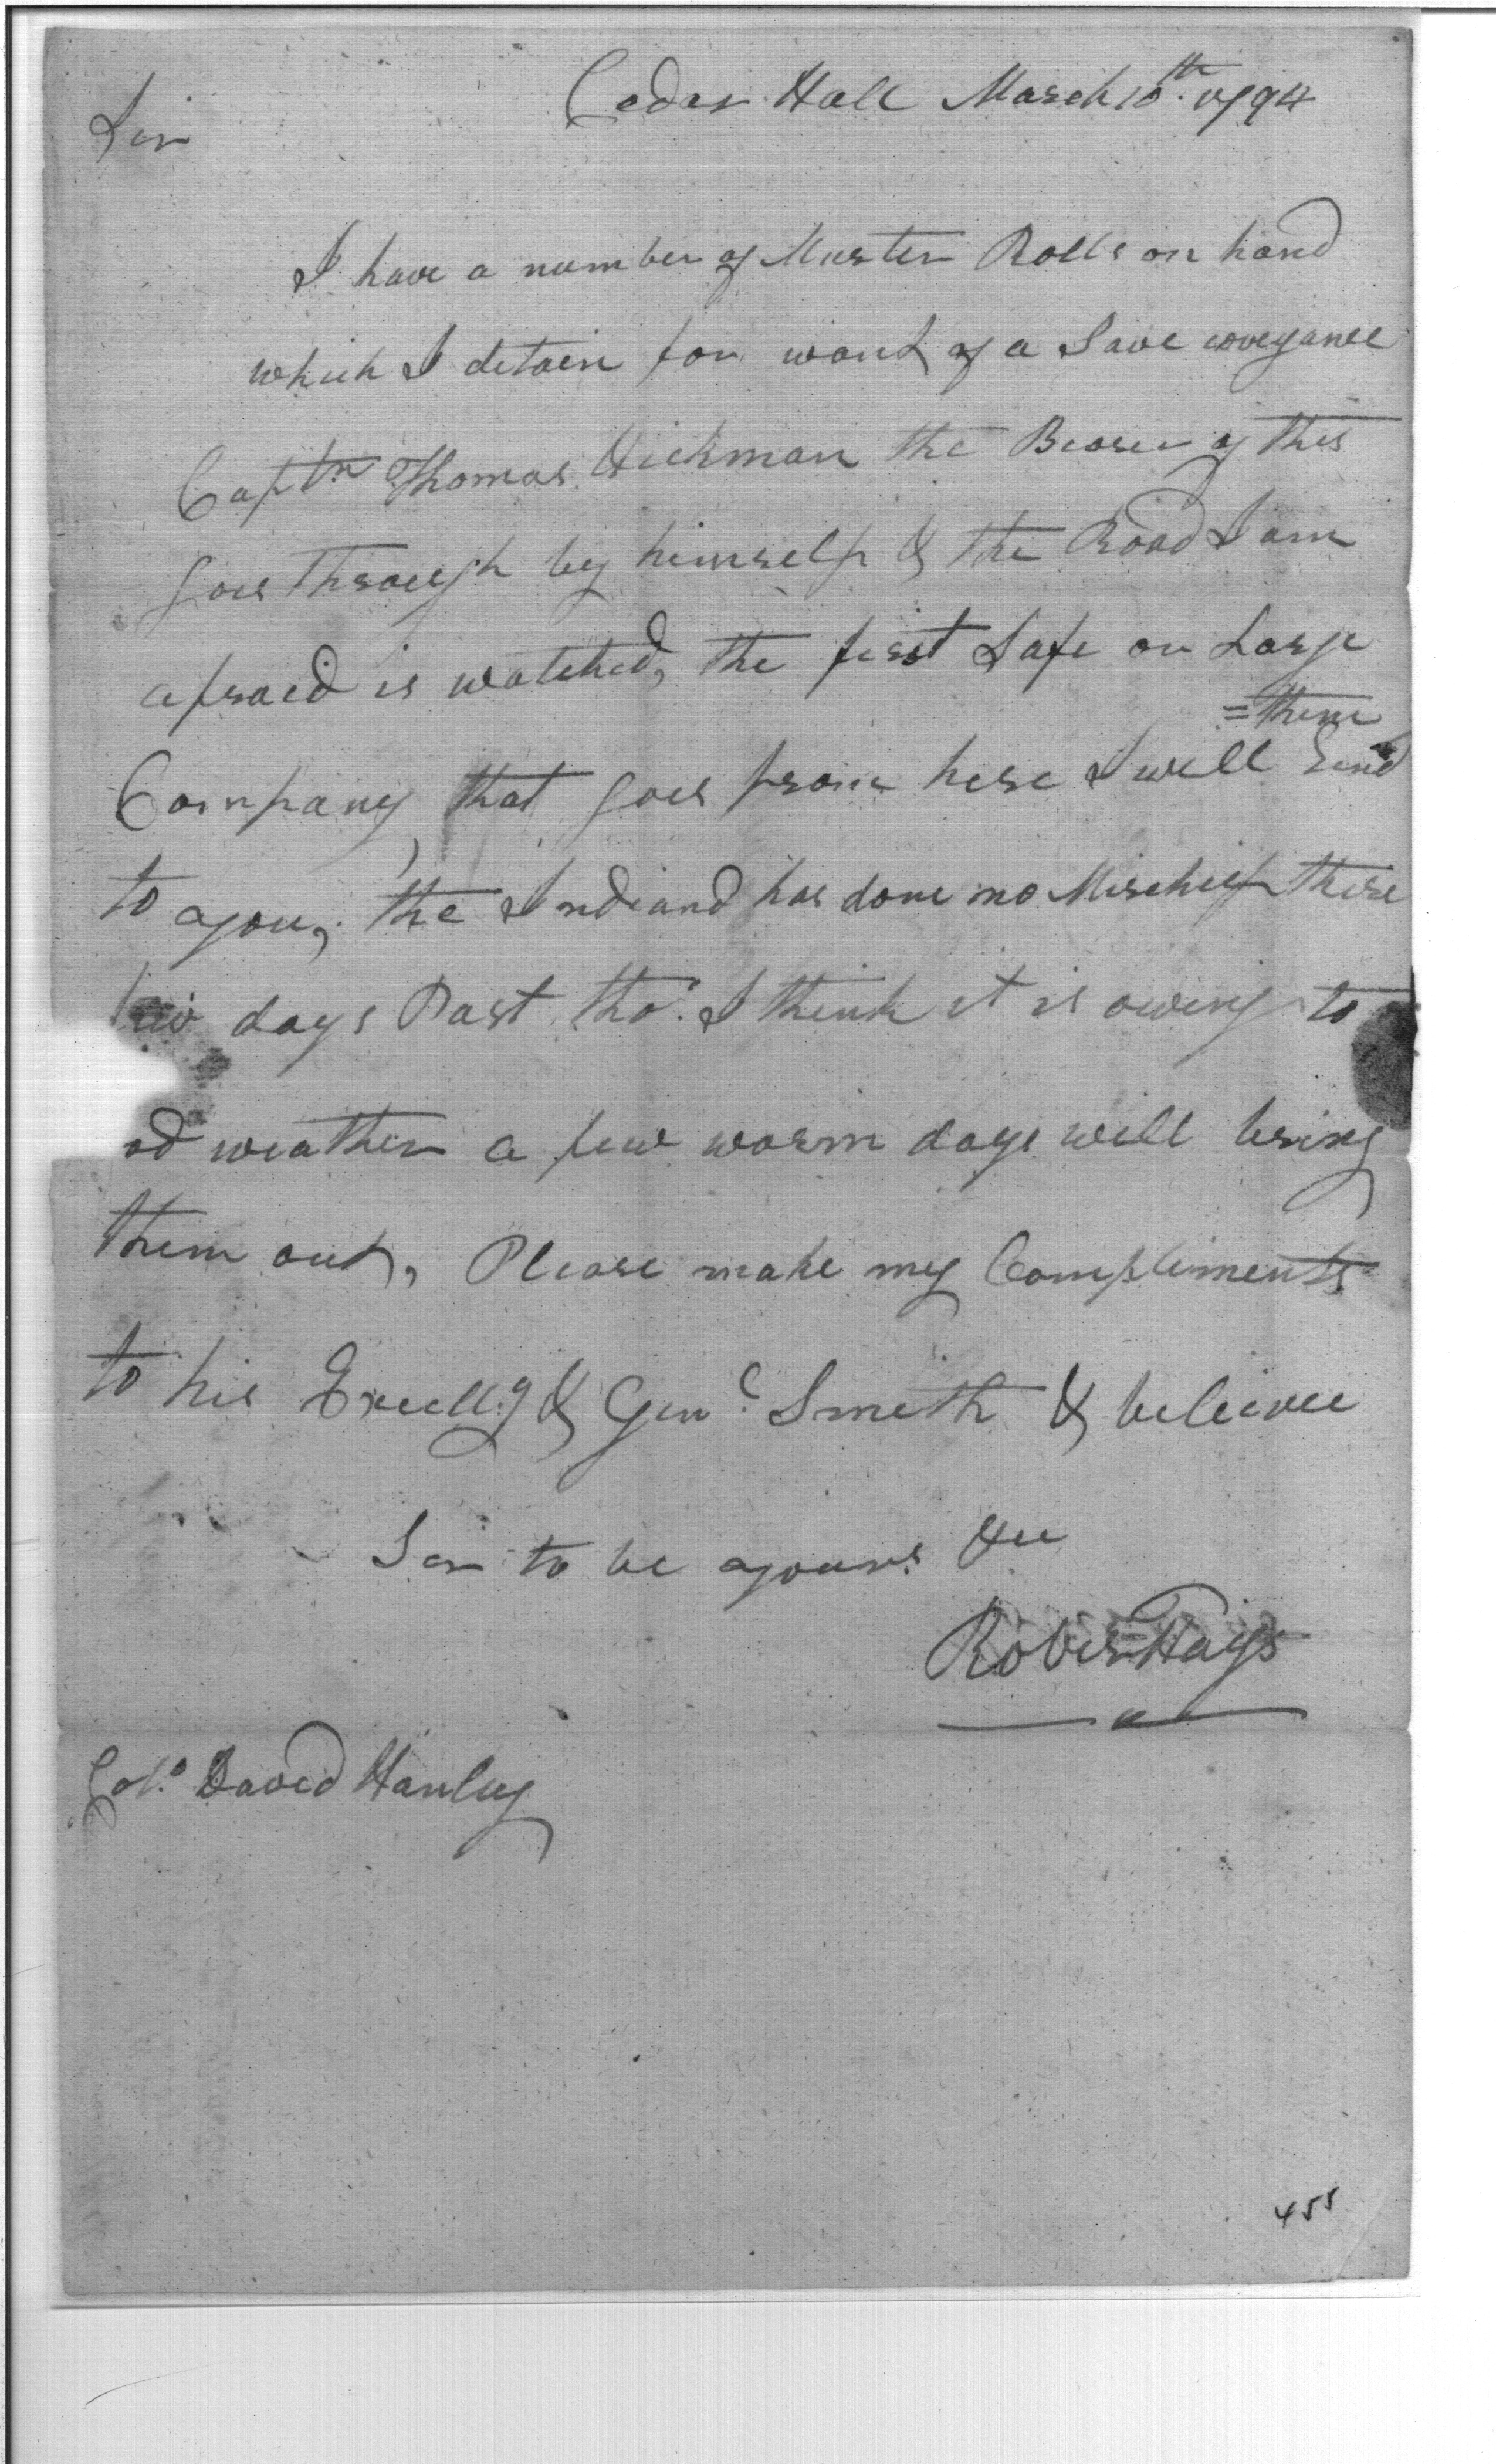 Cedar Hall March 10th. 1794
Sir
I have a number of Muster Rolls on hand
which I detain for want of a Save conveyance
Captn Thomas Hickman the Bearer of this
goes through by himself & the Road I am
afraid is watched, the first Safe or Large
=them
Company, that goes from here I will Send
to you, the Indians has done no Mischief these
few days Past tho. I think it is owing to
od weather a few warm days will bring
them out, Please make my Compliments
to his Excelly & Genl Smith & believe
Sir to be yours &c
Robert Hays
Colo. David Henley
455